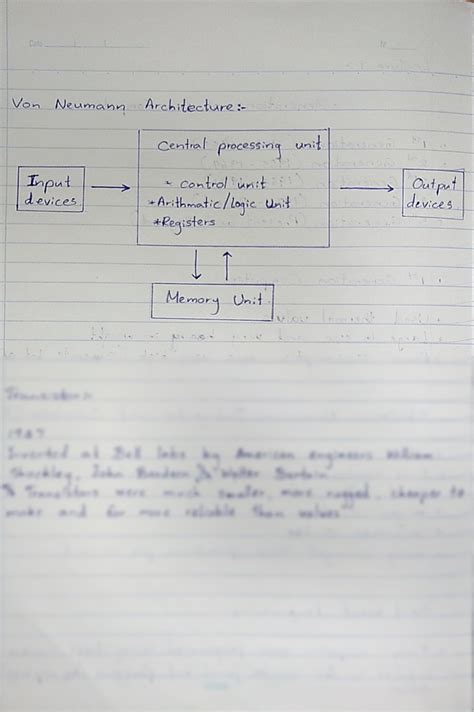 Date
Von Neumann Architecture:-
Central processing unit
* control unit
*Arithmatic/Logic Unit
*Registers
Input
devices
Output
devices
Memory Unit
Transistor:-
1947
Invented at Bell labs by American engineers William
Shockley, John Bardeen & Walter
Transistors were much smaller, more rugged, cheaper to
make and far more reliable than valves